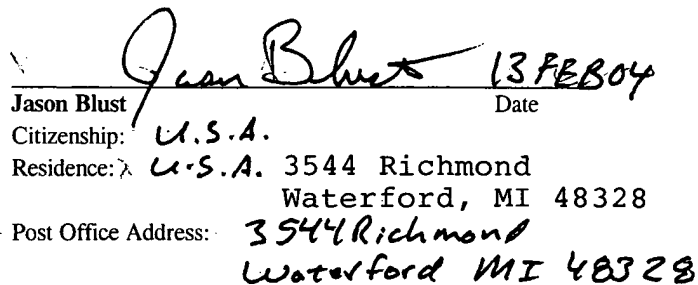 Jason Blust 13 FEB 04
Jason Blust Date
Citizenship: U.S.A.
Residence: U.S.A. 3544 Richmond
Waterford, MI 48328
Post Office Address: 3544 Richmond
Waterford MI 48328